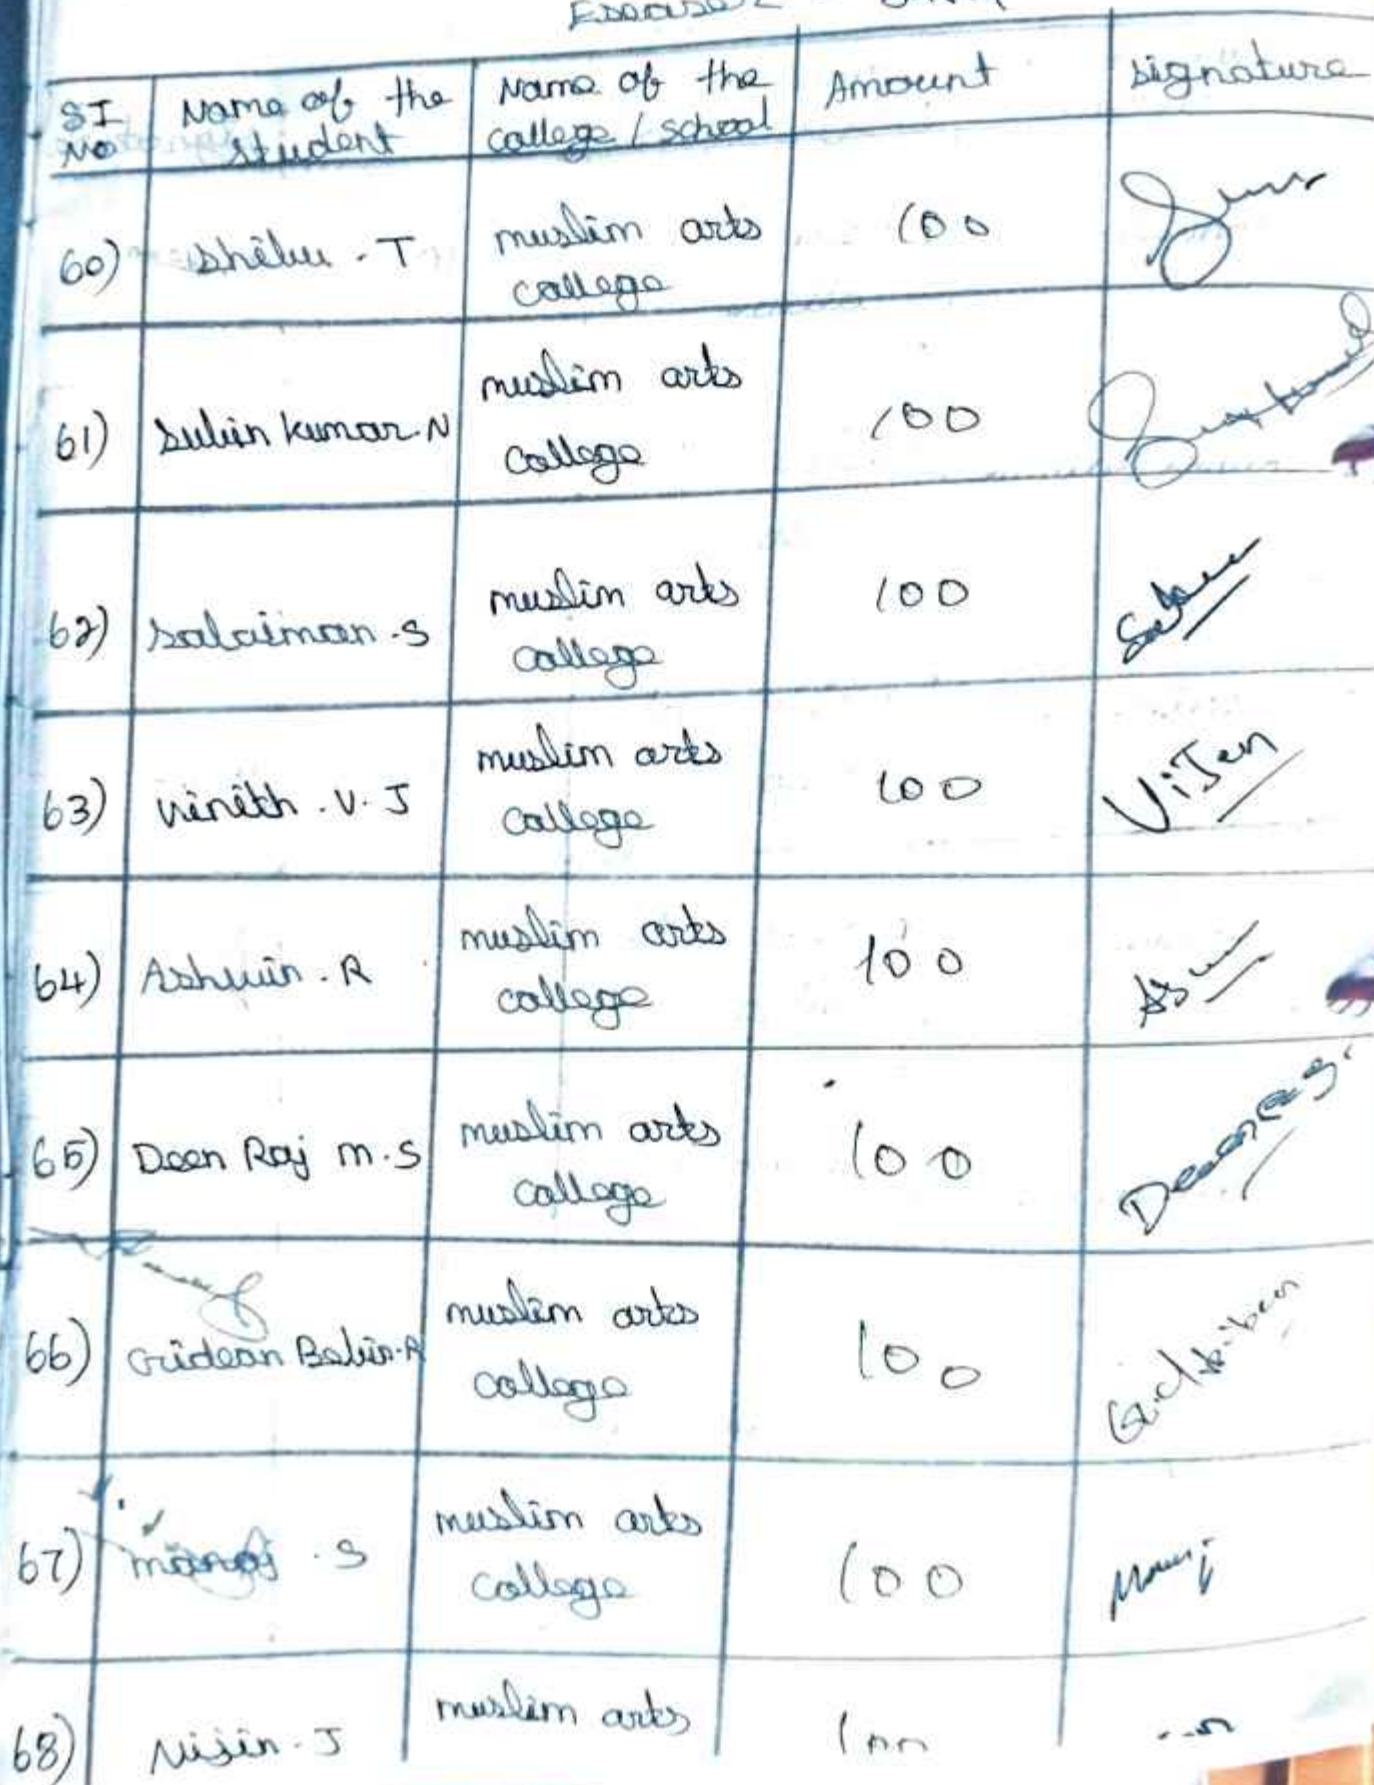 SI No Name of the student Name of the college / school Amount signature
60) Shibu . T muslim arts college 100
61) Subin kumar . N muslim arts college 100
62) Salaiman . S muslim arts college 100
63) Vinith . V . J muslim arts college 100 ViJen
64) Ashwin . R muslim arts college 100
65) Deen Raj m . S muslim arts college 100
66) Gideon Bebin . R muslim arts college 100
67) manoj . S muslim arts college 100
68) Nijin . J muslim arts 100